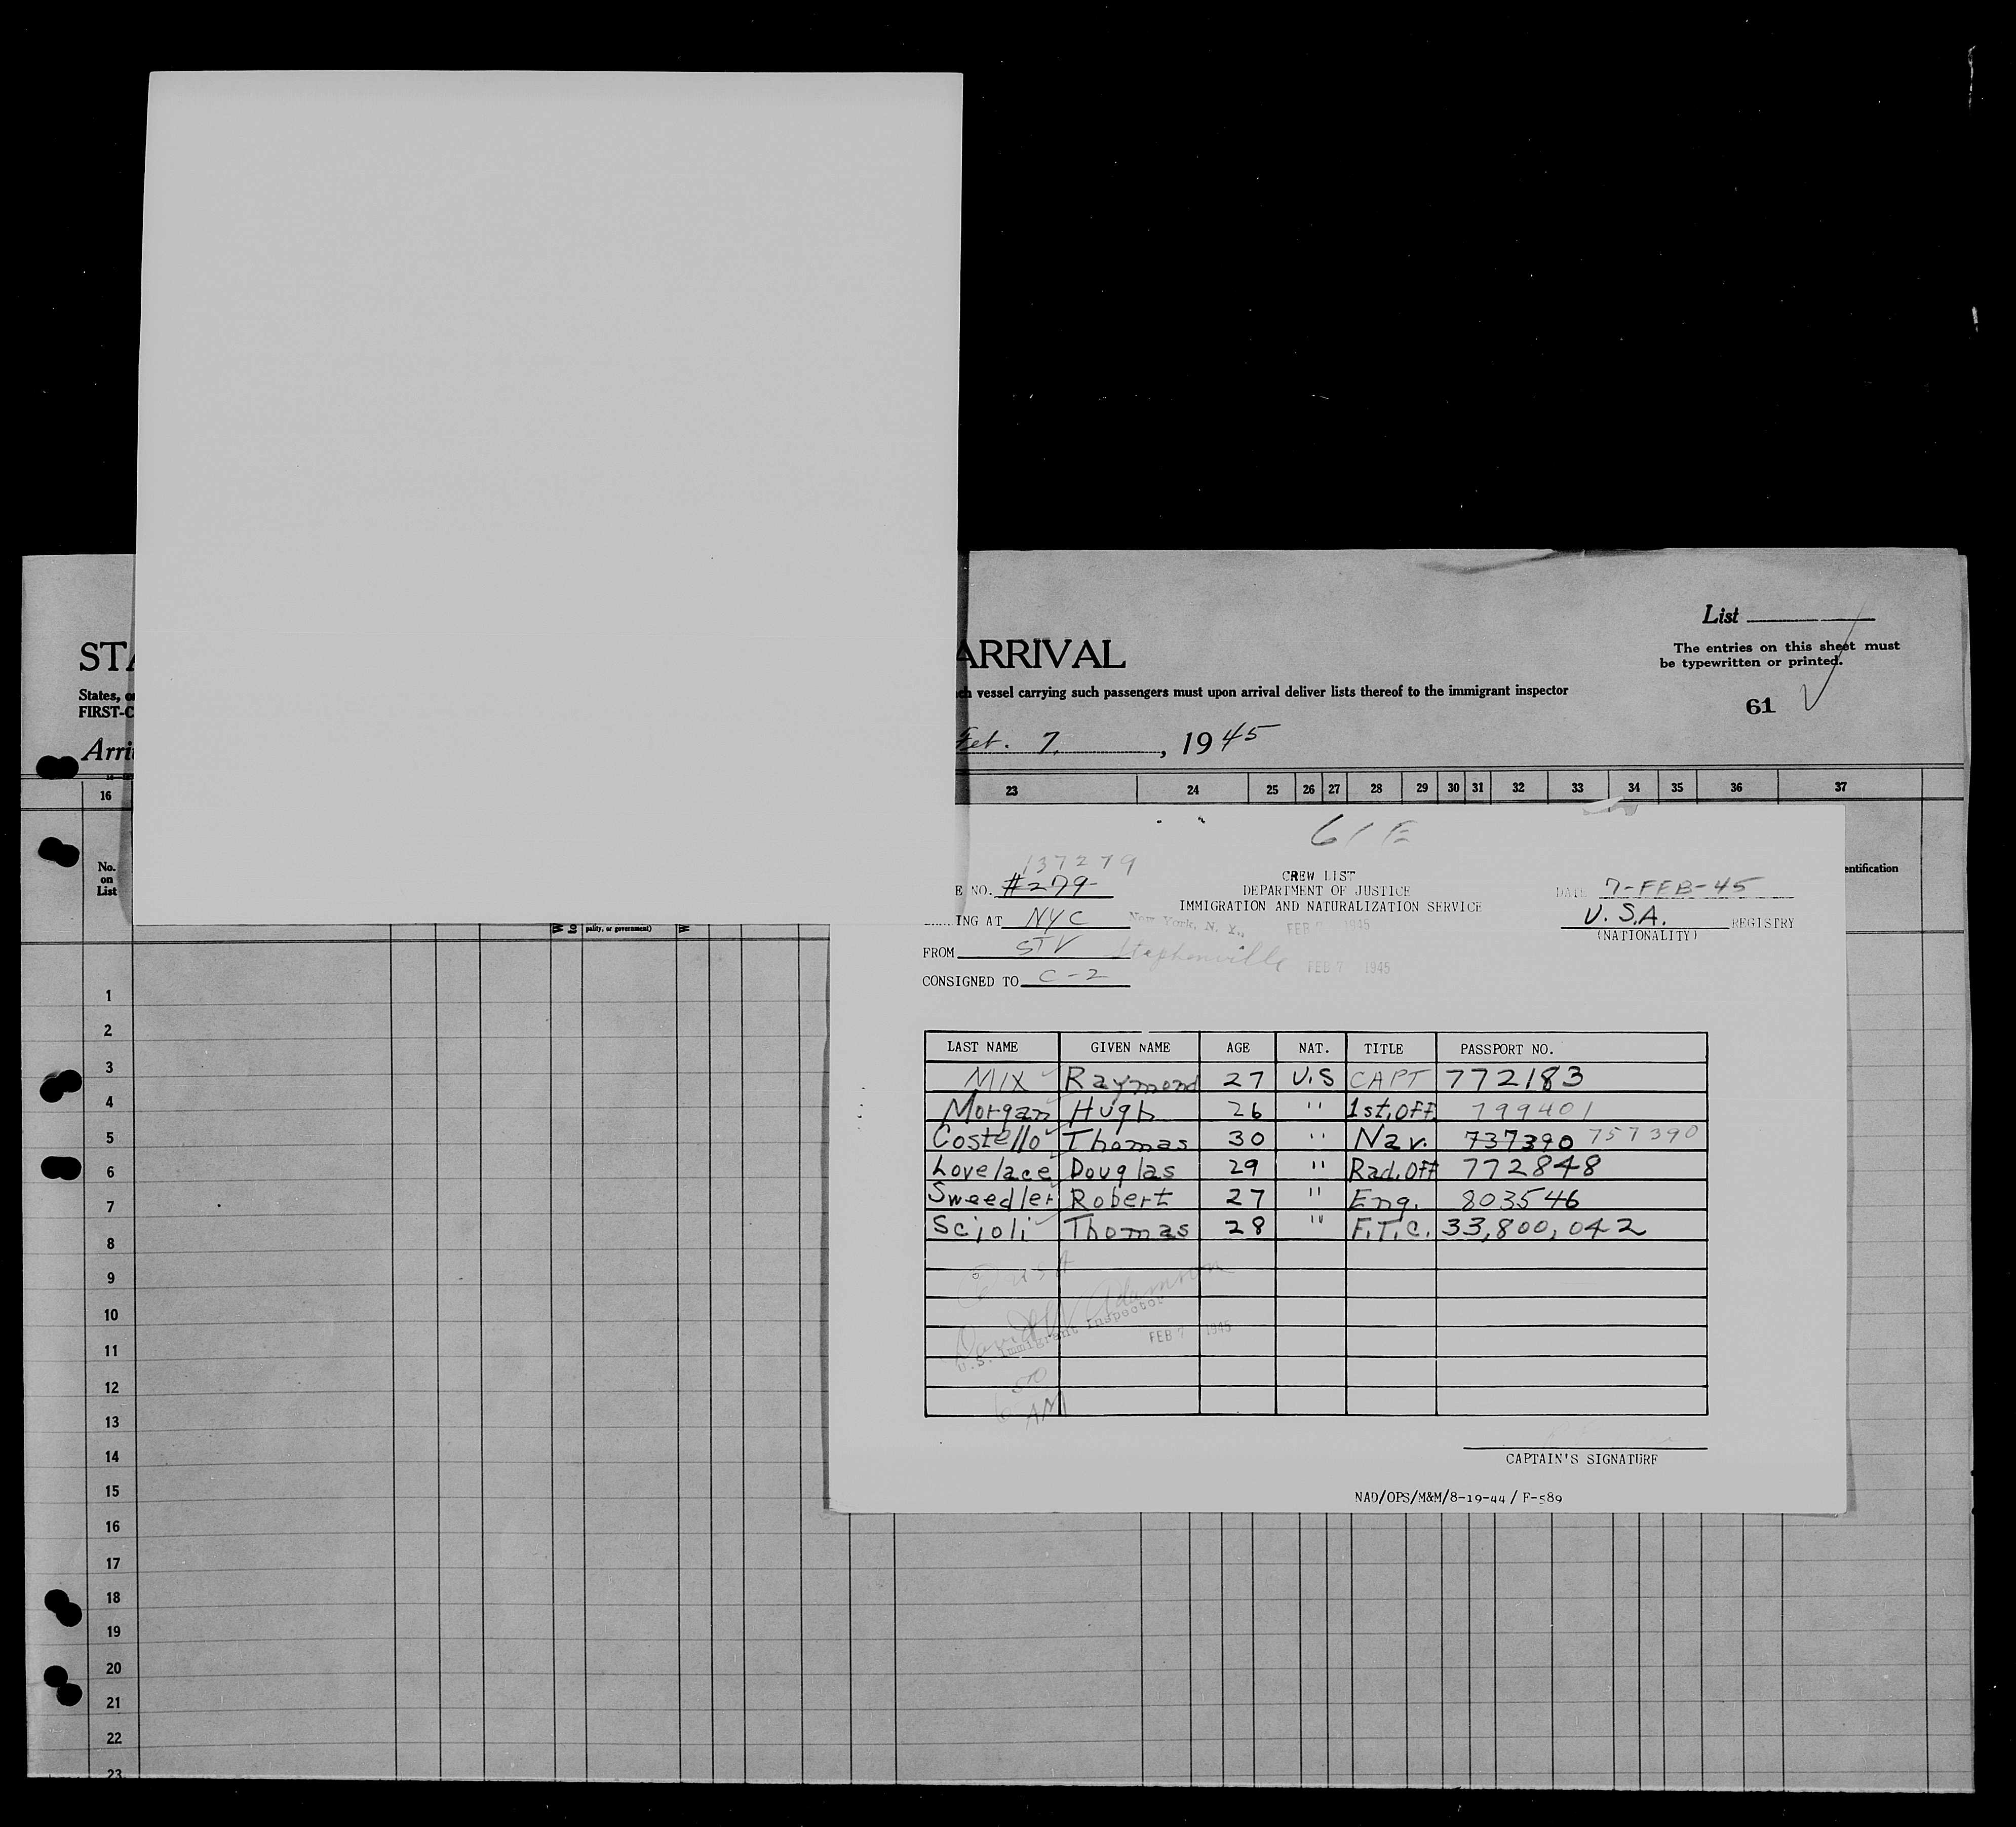 List
The entries on this sheet must
be typewritten or printed.
STA ARRIVAL
States, o ch vessel carrying such passengers must upon arrival deliver lists thereof to the immigrant inspector
FIRST-C
61
Arri Feb. 7, , 1945
16 23 24 25 26 27 28 29 30 31 32 33 34 35 36 37
No.
on
List
entification
pality, or government)
61 E
137279
E NO. #279
CREW LIST
DEPARTMENT OF JUSTICE
IMMIGRATION AND NATURALIZATION SERVICE
DATE 7-FEB-45
U.S.A. REGISTRY
(NATIONALITY)
ING AT NYC New York, N. Y., FEB 1945
FROM STV Stephenville FEB 7 1945
CONSIGNED TO C-2
LAST NAME GIVEN NAME AGE NAT. TITLE PASSPORT NO.
Mix Raymond 27 U.S CAPT 772183
Morgan Hugh 26 " 1st.Off. 799401
Costello Thomas 30 " Nav. 737390 757390
Lovelace Douglas 29 " Rad.Off 772848
Sweedler Robert 27 " Eng. 803546
Scioli Thomas 28 " F.T.C. 33,800,042
USA
David W Adamson
U.S. Immigrant Inspector
FEB 7 1945
AM
CAPTAIN'S SIGNATURE
NAD/OPS/M&M/8-19-44 / F-589
1
2
3
4
5
6
7
8
9
10
11
12
13
14
15
16
17
18
19
20
21
22
23